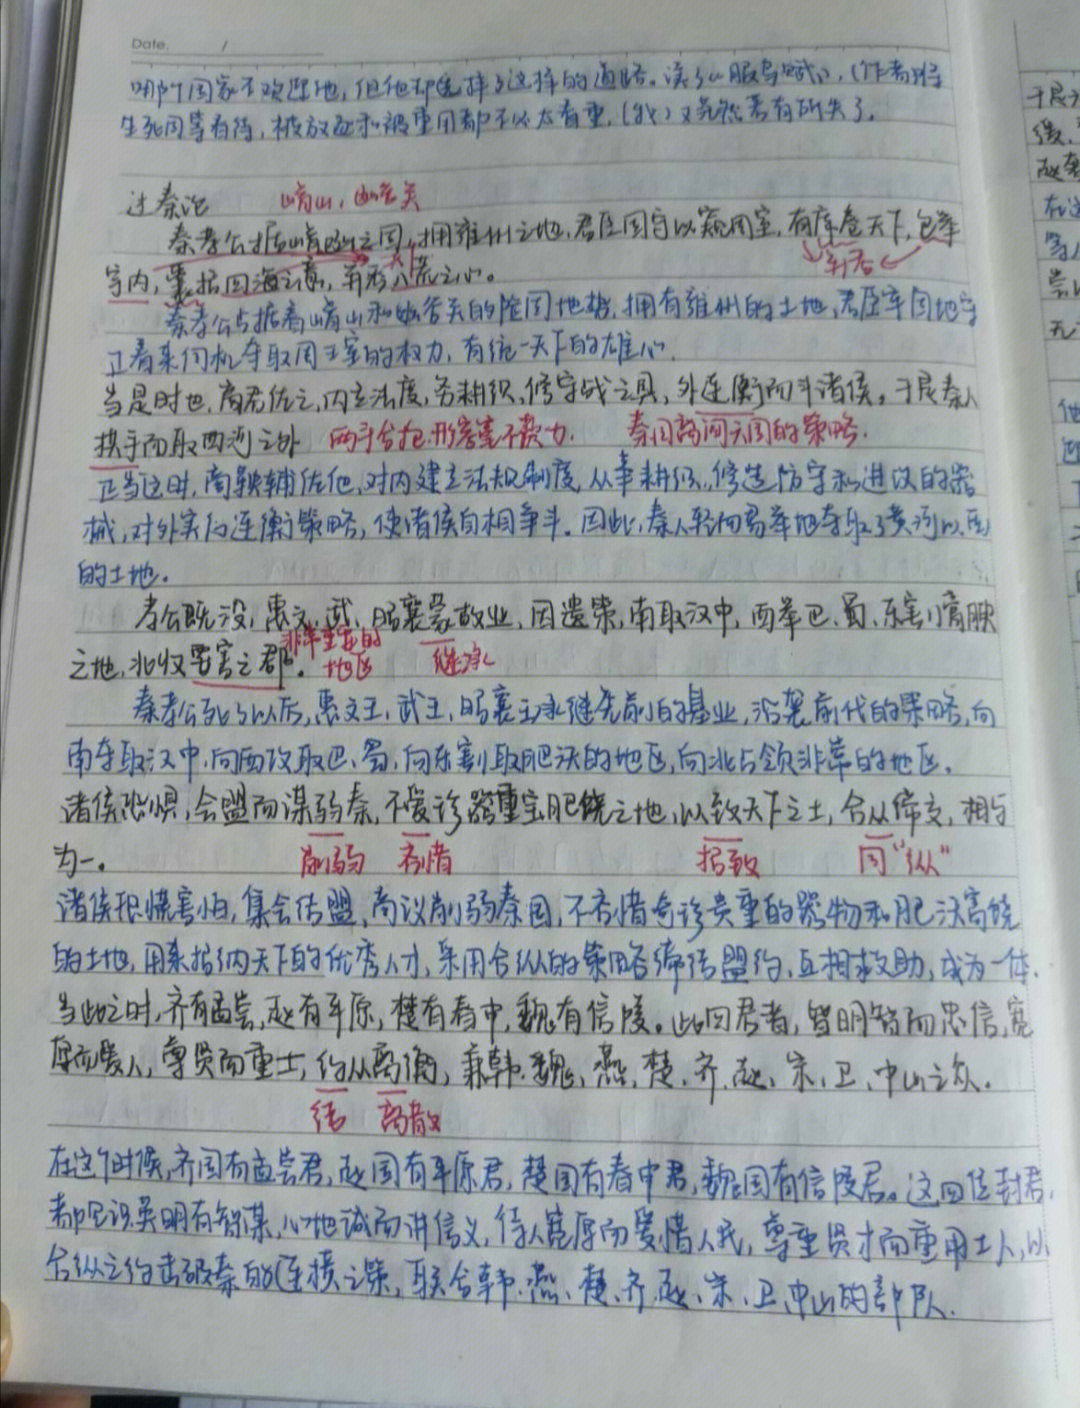 Date. /
哪个国家不欢迎他，但他却选择了这样的道路。读了《服鸟赋》，(作者)将
生死同等看待，被放逐和被重用都不必太看重，(我)又茫然若有所失了。
过秦论 崤山，函谷关
秦孝公据崤函之固，拥雍州之地，君臣固守以窥周室，有席卷天下，包举
宇内，囊括四海之意，并吞八荒之心。
并吞
秦孝公占据着崤山和函谷关的险固地势，拥有雍州的土地，君臣牢固地守
卫着来伺机夺取周王室的权力，有统一天下的雄心。
当是时也，商君佐之，内立法度，务耕织，修守战之具，外连衡而斗诸侯。于是秦人
拱手而取西河之外 两手合抱，形容毫不费力. 秦国离间六国的策略.
正当这时，商鞅辅佐他，对内建立法规制度，从事耕织，修造防守和进攻的器
械，对外实行连衡策略，使诸侯自相争斗。因此，秦人轻而易举地夺取了黄河以西
的土地。
孝公既没，惠文、武、昭襄蒙故业，因遗策，南取汉中，西举巴、蜀，东割膏腴
之地，北收要害之郡。 非常重要的地区 继承
秦孝公死了以后，惠文王，武王，昭襄王承继先前的基业，沿袭前代的策略，向
南夺取汉中，向西攻取巴、蜀，向东割取肥沃的地区，向北占领非常的地区。
诸侯恐惧，会盟而谋弱秦，不爱珍器重宝肥饶之地，以致天下之士，合从缔交，相与
为一。 削弱 吝惜 招致 同“纵”
诸侯恐慌害怕，集会结盟，商议削弱秦国，不吝惜奇珍贵重的器物和肥沃富饶
的土地，用来招纳天下的优秀人才，采用合纵的策略缔结盟约，互相救助，成为一体.
当此之时，齐有孟尝，赵有平原，楚有春申，魏有信陵。此四君者，皆明智而忠信，宽
厚而爱人，尊贤而重士，约从离衡，兼韩、魏、燕、楚、齐、赵、宋、卫、中山之众。
结 离散
在这个时候，齐国有孟尝君，赵国有平原君，楚国有春申君，魏国有信陵君。这四位封君，
都见识英明有智谋，心地诚而讲信义，待人宽厚而爱惜人民，尊重贤才而重用士人，以
合纵之约击破秦的连横之策，联合韩、燕、楚、齐、赵、宋、卫、中山的部队.